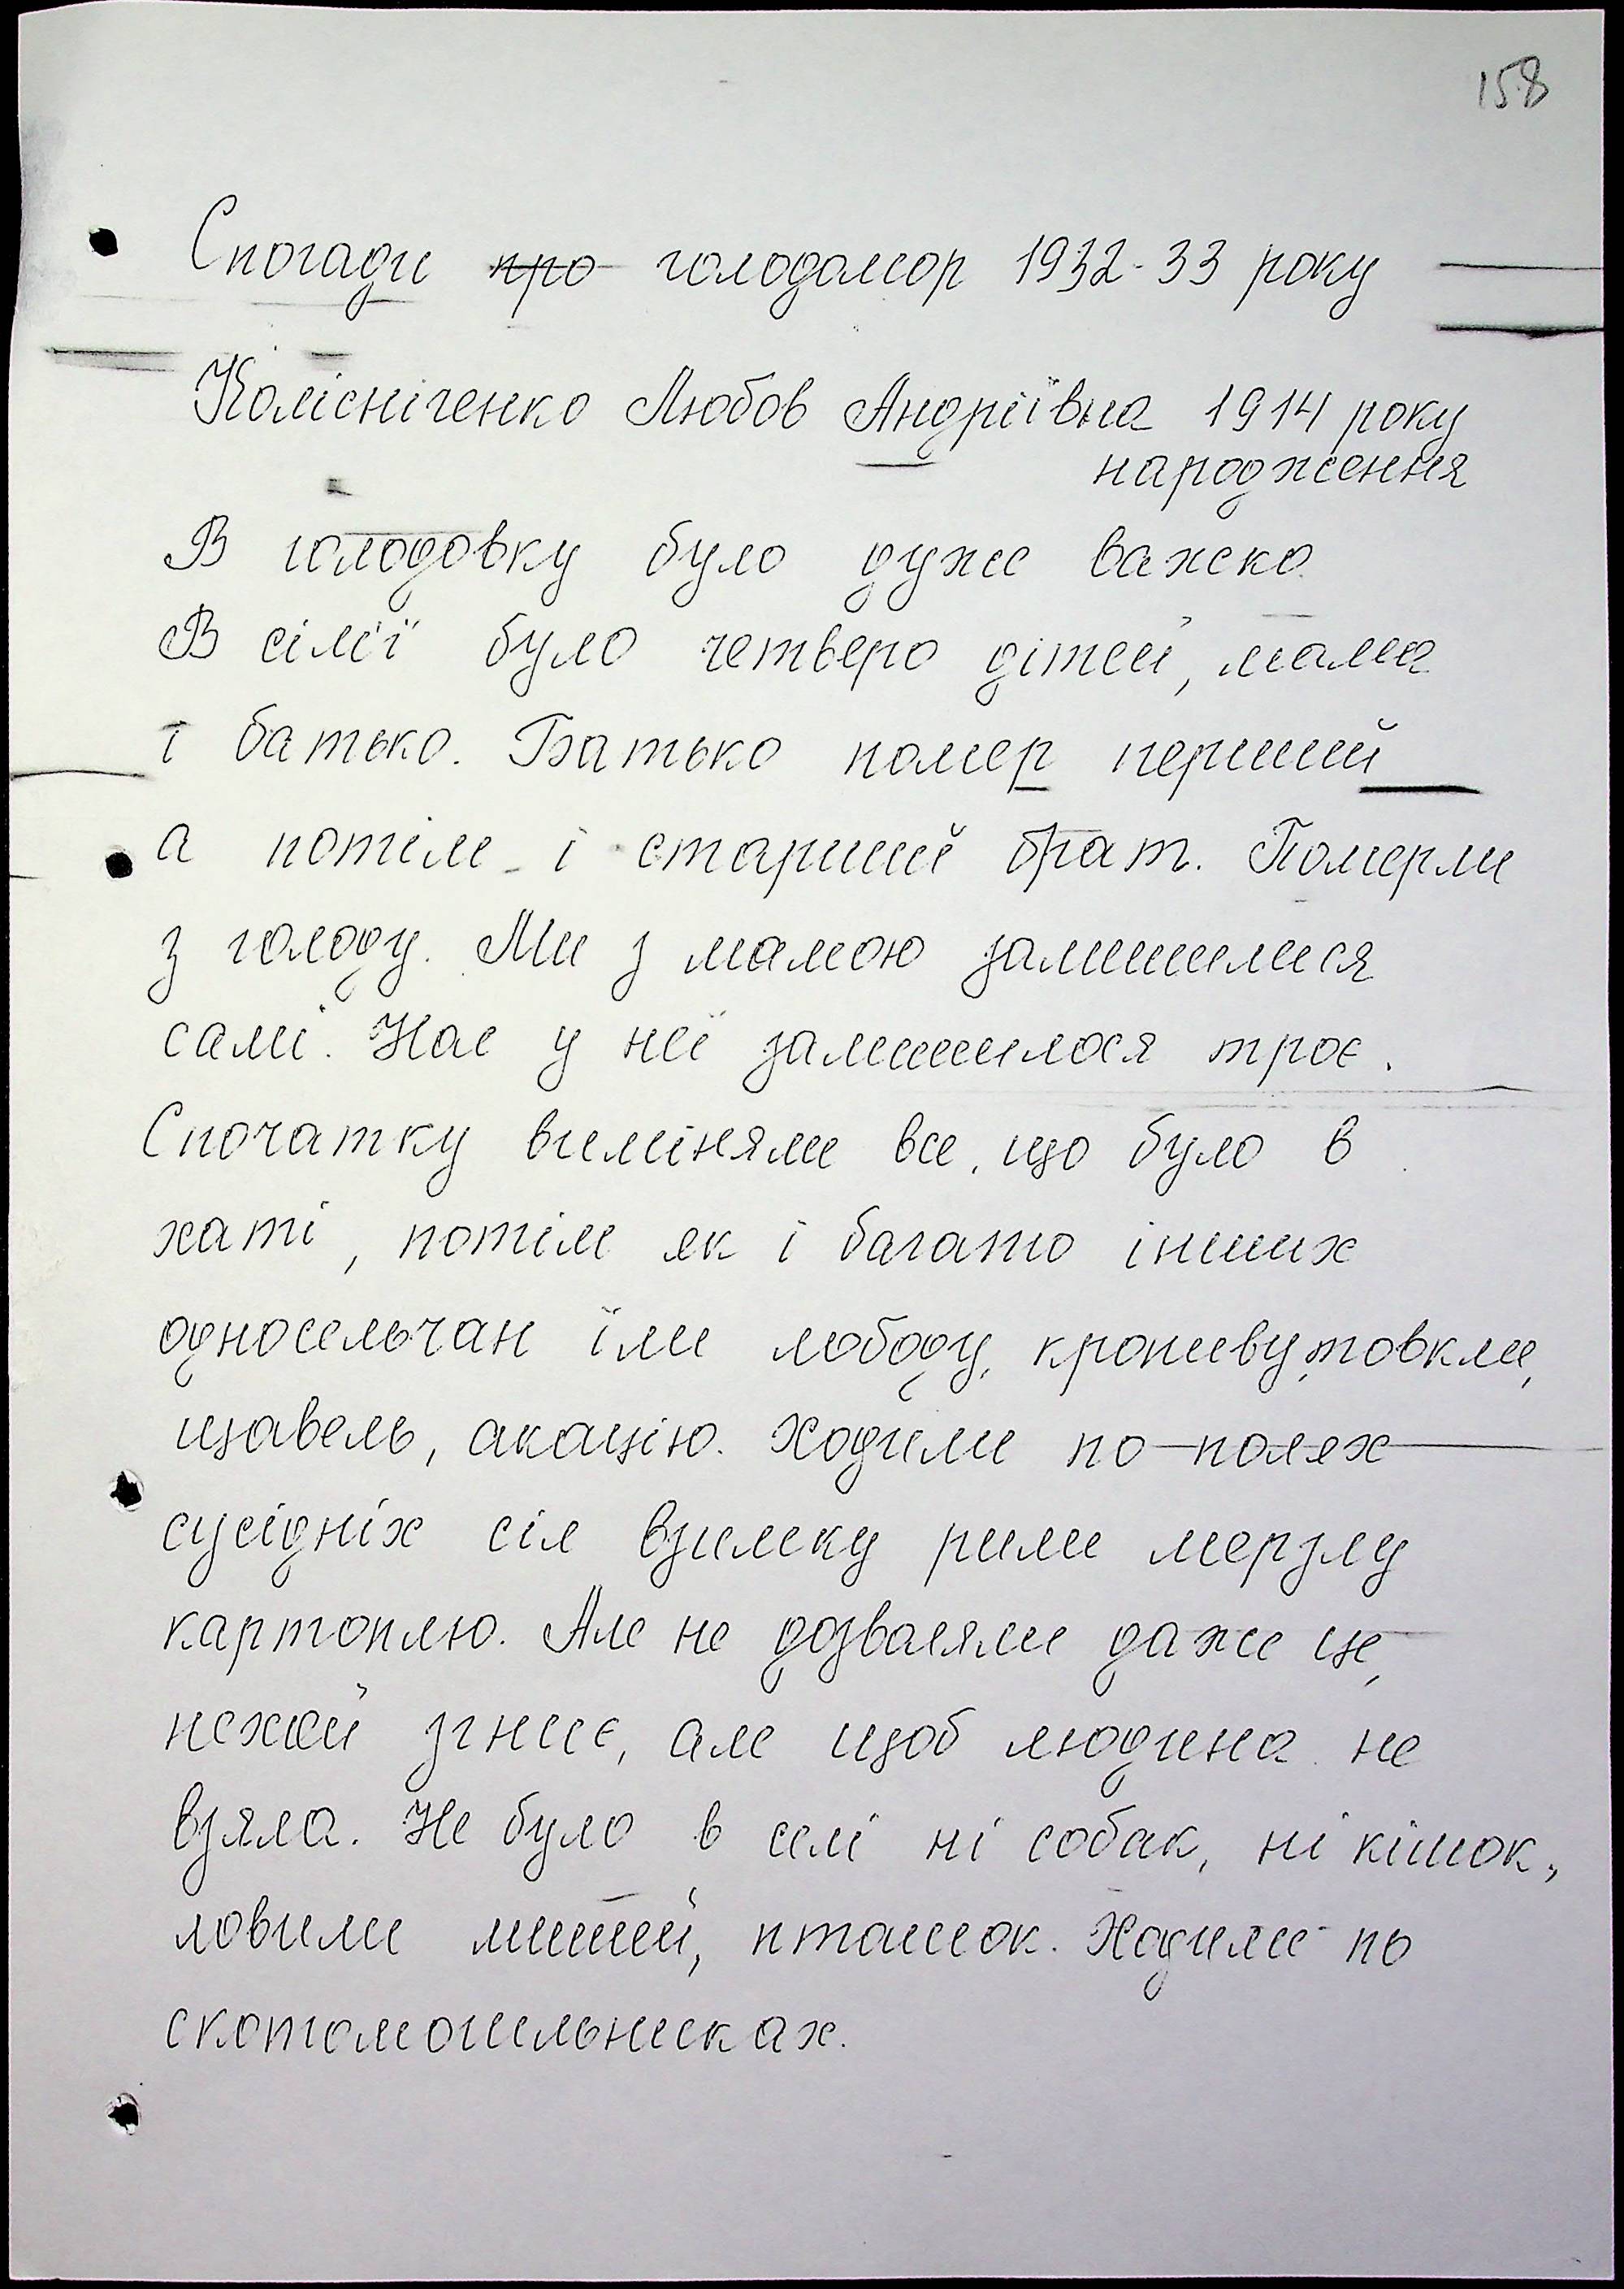 158
Спогади про голодомор 1932-33 року
Колісніченко Любов Андріївна 1914 року
народження
В голодовку було дуже важко.
В сім'ї було четверо дітей, мама
і батько. Батько помер перший
а потім і старший брат. Померли
з голоду. Ми з мамою залишилися
самі. Нас у неї залишилося троє.
Спочатку виміняли все, що було в
хаті, потім як і багато інших
односельчан їли лободу, кропиву, товкли,
щавель, акацію. Ходили по полях
сусідніх сіл взимку рили мерзлу
картоплю. Але не дозваляли даже це,
нехай згниє, але щоб людина не
взяла. Не було в селі ні собак, ні кішок,
ловили мишей, пташок. Ходили по
скотомогильниках.